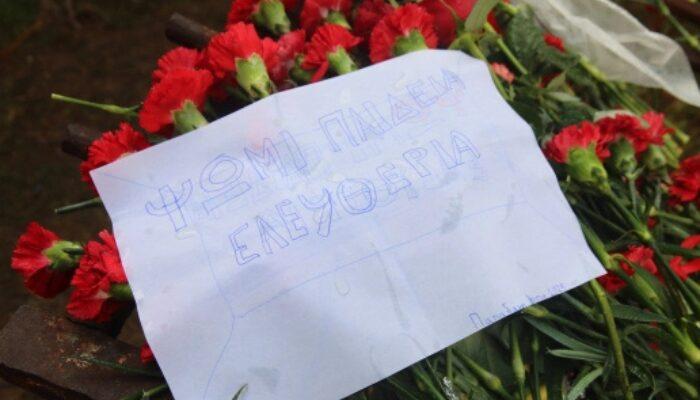 ΨΩΜΙ ΠΑΙΔΕΙΑ
ΕΛΕΥΘΕΡΙΑ